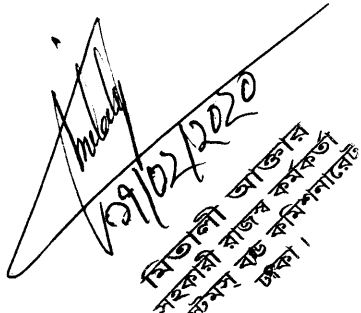 ১৭/০২/২০২০
মিতালী আক্তার
সহকারী রাজস্ব কর্মকর্তা
কাস্টমস্ বন্ড কমিশনারেট
ঢাকা।